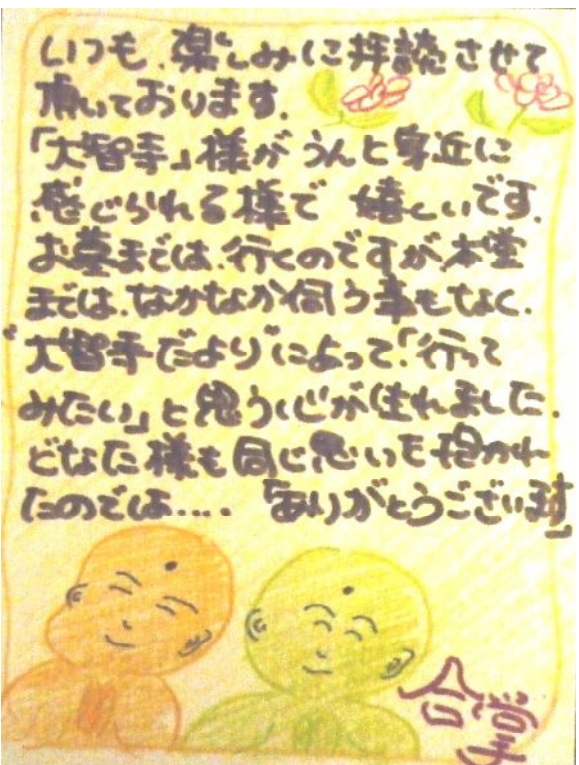 いつも、楽しみに拝読させて
頂いております。
「大智寺」様がうんと身近に
感じられる様で 嬉しいです。
お墓までは、行くのですが、本堂
までは、なかなか伺う事もなく、
"大智寺だより"によって「行って
みたい」と思う心が生れました。
どなた様も同じ思いを抱かれ
たのでは.... 「ありがとうございます」
合掌